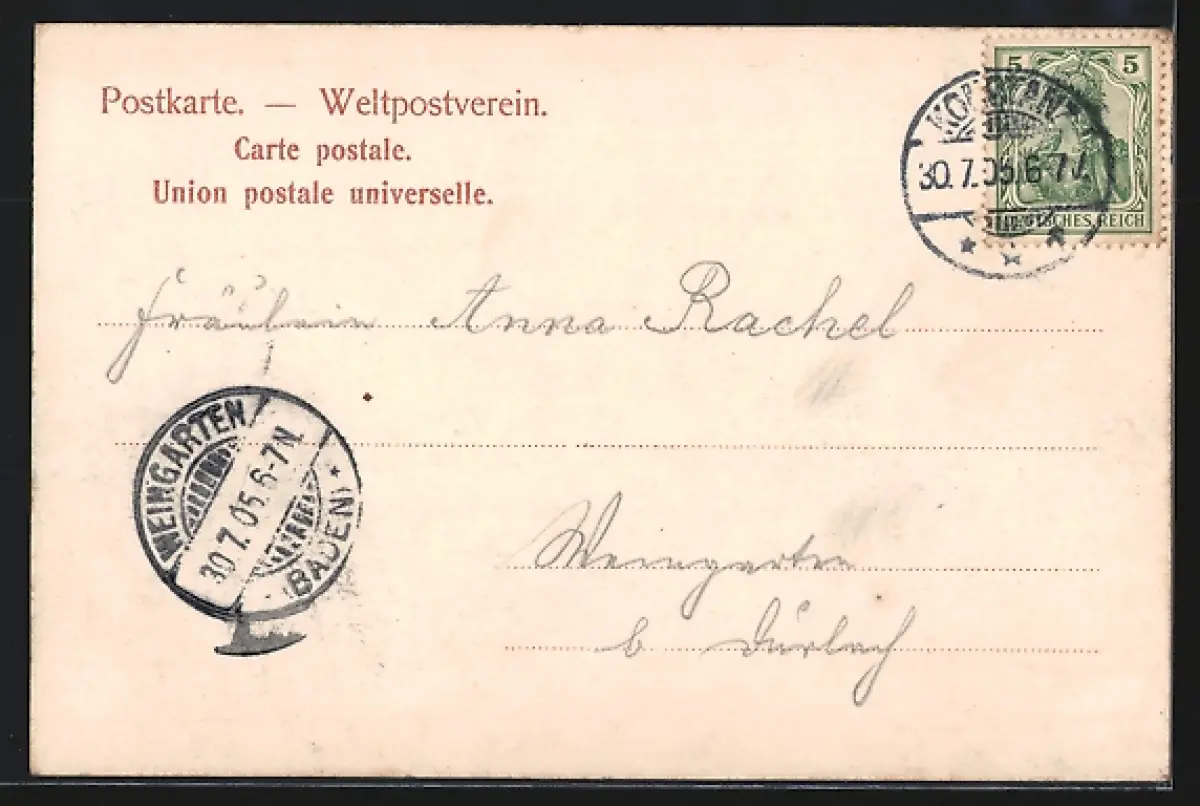 Postkarte. — Weltpostverein.
Carte postale.
Union postale universelle.
5 5
DEUTSCHES REICH
KONSTANZ
30.7.05.6-7N.
Fräulein Anna Rachel
WEINGARTEN
30.7.05.6-7N.
(BADEN)
Weingarten
b Durlach